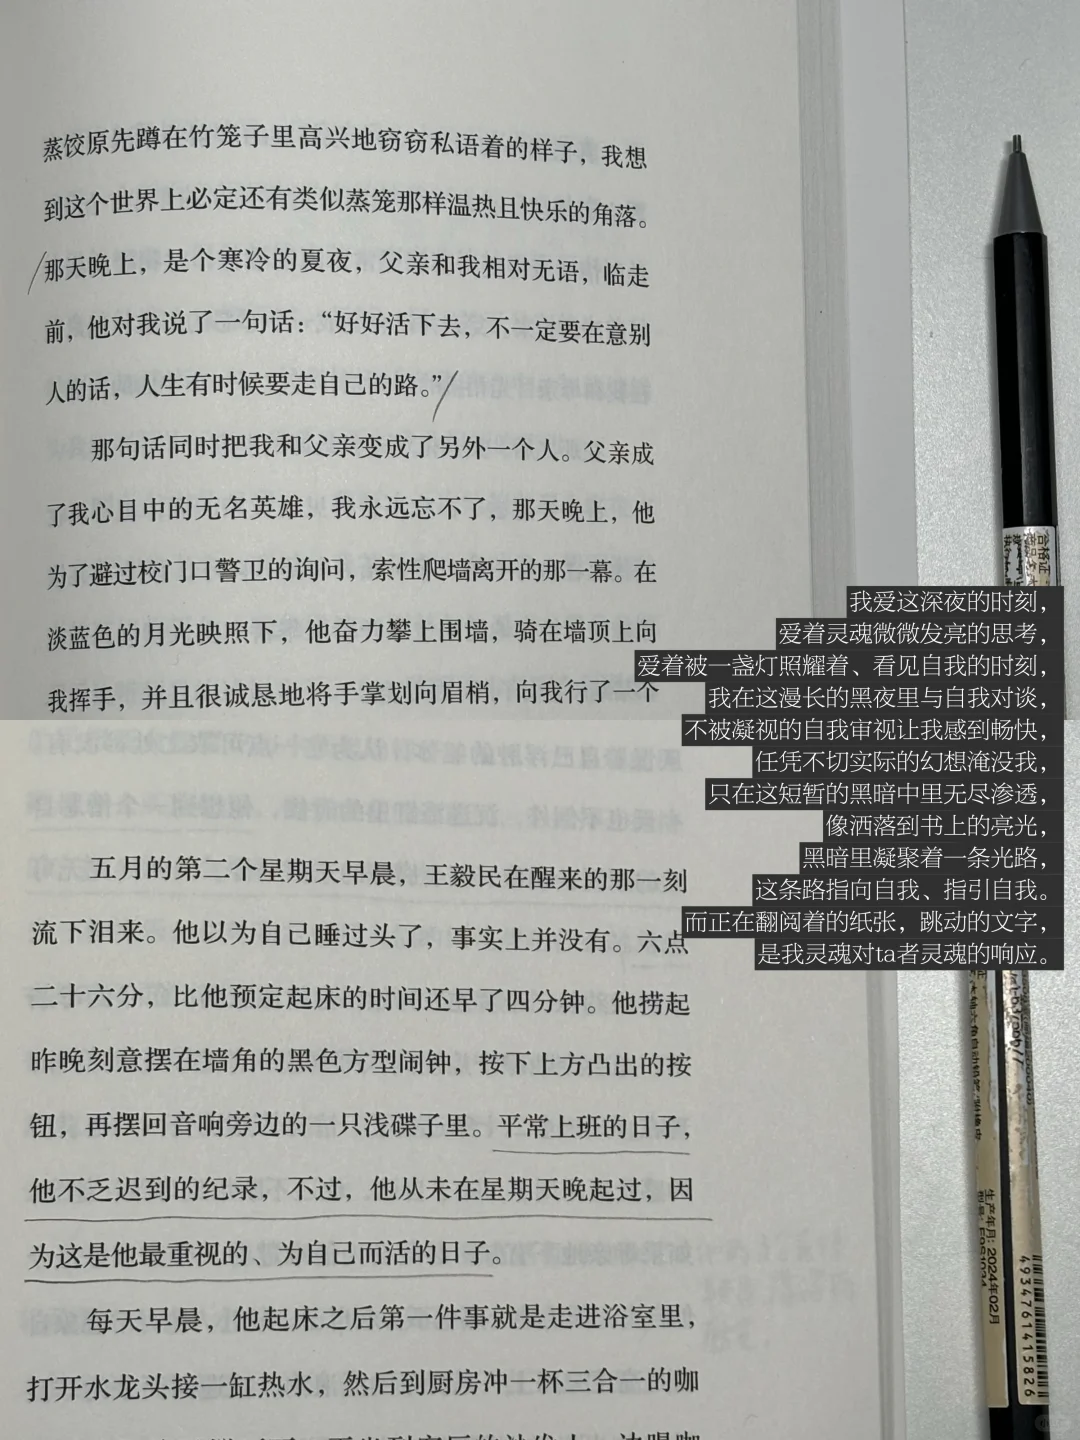 蒸饺原先蹲在竹笼子里高兴地窃窃私语着的样子，我想
到这个世界上必定还有类似蒸笼那样温热且快乐的角落。
那天晚上，是个寒冷的夏夜，父亲和我相对无语，临走
前，他对我说了一句话：“好好活下去，不一定要在意别
人的话，人生有时候要走自己的路。”
那句话同时把我和父亲变成了另外一个人。父亲成
了我心目中的无名英雄，我永远忘不了，那天晚上，他
为了避过校门口警卫的询问，索性爬墙离开的那一幕。在
淡蓝色的月光映照下，他奋力攀上围墙，骑在墙顶上向
我挥手，并且很诚恳地将手掌划向眉梢，向我行了一个
五月的第二个星期天早晨，王毅民在醒来的那一刻
流下泪来。他以为自己睡过头了，事实上并没有。六点
二十六分，比他预定起床的时间还早了四分钟。他捞起
昨晚刻意摆在墙角的黑色方型闹钟，按下上方凸出的按
钮，再摆回音响旁边的一只浅碟子里。平常上班的日子，
他不乏迟到的纪录，不过，他从未在星期天晚起过，因
为这是他最重视的、为自己而活的日子。
每天早晨，他起床之后第一件事就是走进浴室里，
打开水龙头接一缸热水，然后到厨房冲一杯三合一的咖
我爱这深夜的时刻，
爱着灵魂微微发亮的思考，
爱着被一盏灯照耀着、看见自我的时刻，
我在这漫长的黑夜里与自我对谈，
不被凝视的自我审视让我感到畅快，
任凭不切实际的幻想淹没我，
只在这短暂的黑暗中里无尽渗透，
像洒落到书上的亮光，
黑暗里凝聚着一条光路，
这条路指向自我、指引自我。
而正在翻阅着的纸张，跳动的文字，
是我灵魂对ta者灵魂的响应。
合格证
生产年月：2024年02月
4934761415826